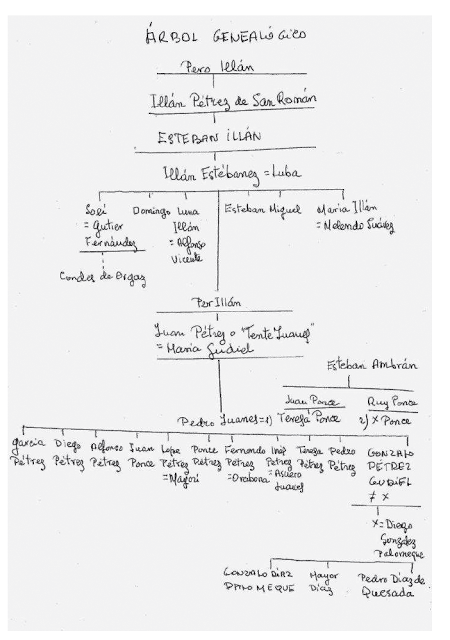 ÁRBOL GENEALÓGICO
Pero Illán
Illán Pétrez de San Román
ESTEBAN ILLÁN
Illán Estébanez = Luba
Solí Domingo Luna Esteban Miguel María Illán
= Gutier Illán = Melendo Suárez
Fernández = Alfonso
Vicente
Condes de Orgaz
Per Illán
Juan Pétrez o "Tente Juanes"
= María Gudiel
Esteban Ambrán
Juan Ponce Ruy Ponce
Pedro Juanes = 1) Teresa Ponce 2) X Ponce
García Diego Alfonso Juan Lope Ponce Fernando Inés Teresa Pedro GONZALO
Pétrez Pétrez Pétrez Ponce Pétrez Pétrez Pétrez Pétrez Pétrez Pétrez PÉTREZ
= Mayorí = Orabona = Asuero GUDIEL
Juanes ≠ X
X = Diego
González
Palomeque
GONZALO DÍAZ Mayor Pedro Díaz de
PALOMEQUE Díaz Quesada